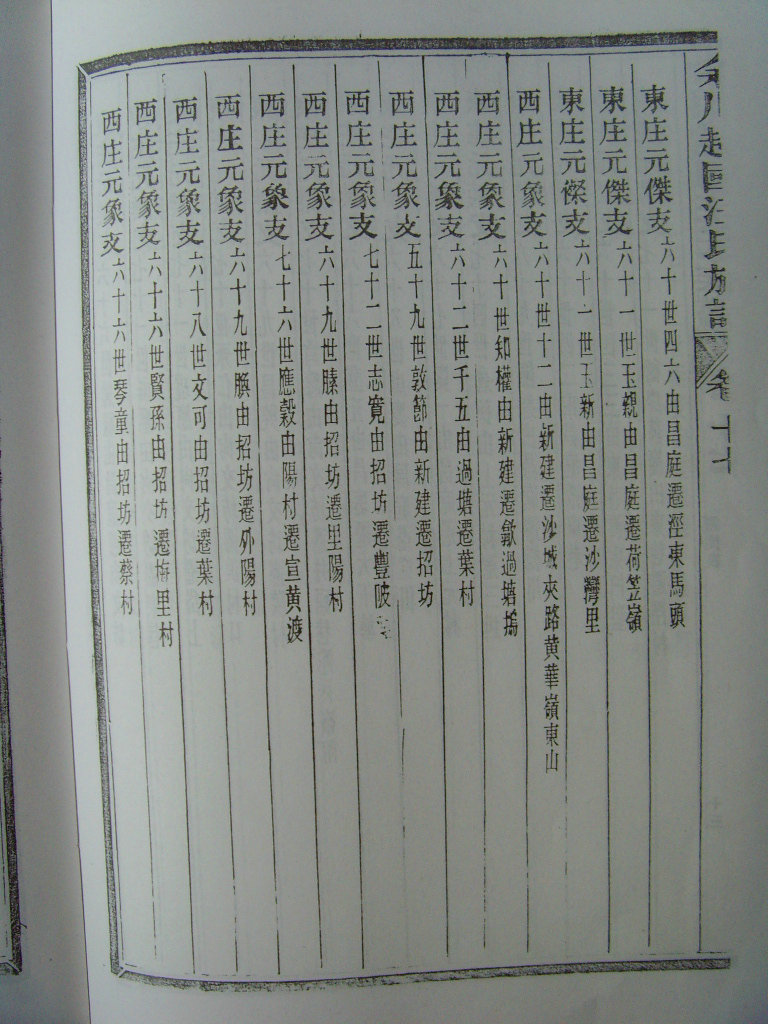 越國汪氏族譜 卷十七
東庄元傑支六十世四六由昌庭遷涇東馬頭
東庄元傑支六十一世玉親由昌庭遷荷笠嶺
東庄元傑支六十一世玉新由昌庭遷沙灣里
西庄元象支六十世十二由新建遷沙城夾路黄華嶺東山
西庄元象支六十世知權由新建遷歙過塘塢
西庄元象支六十二世千五由過塘遷葉村
西庄元象支五十九世敦節由新建遷招坊
西庄元象支七十二世志寛由招坊遷豐陂
西庄元象支六十九世膆由招坊遷里陽村
西庄元象支七十六世應穀由陽村遷宣黄渡
西庄元象支六十九世由招坊遷外陽村
西庄元象支六十八世文可由招坊遷葉村
西庄元象支六十六世賢孫由招坊遷梅里村
西庄元象支六十六世琴童由招坊遷蔡村